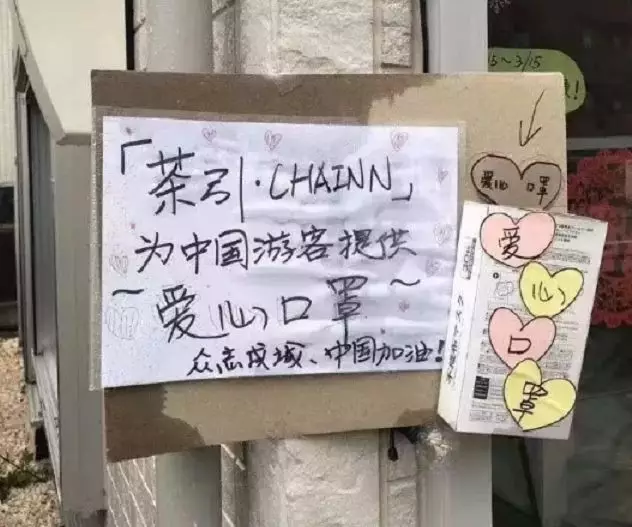 「茶引·CHAINN」
为中国游客提供
~爱心口罩~
众志成城、中国加油!
5~3/15
!
爱心口罩
爱
心
口
罩